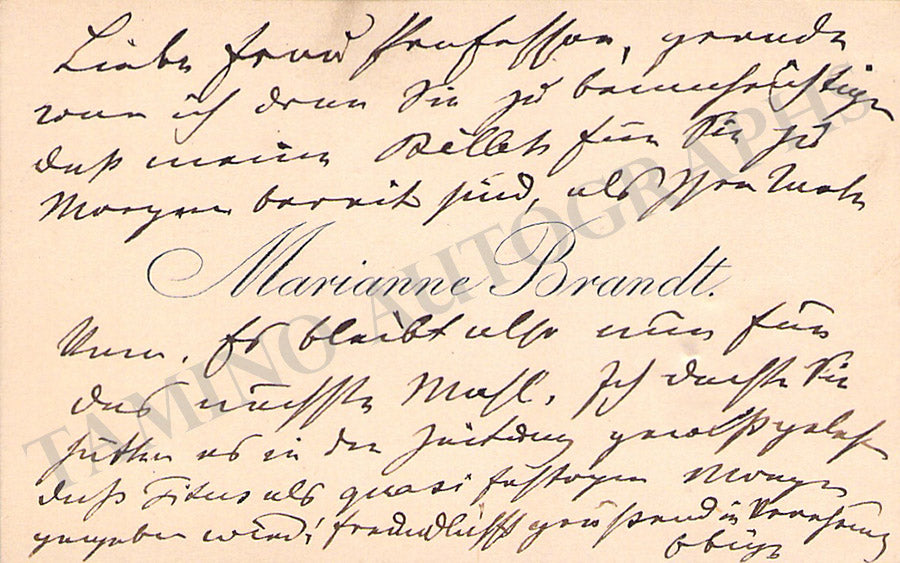 Liebe Frau Professor, gerade
war ich denn Sie zu benachrichtigen
daß meine Billets für Sie zu
Morgen bereit sind, als Ihr
Marianne Brandt.
kam. Es bleibt also nun für
das nächste Mahl. Ich dachte Sie
hätten es in der Zeitung gewiß gelesen
daß Titus als quasi Morgen
gegeben wird! freundlichst grüßend in Verehrung
obige
TAMINO AUTOGRAPHS